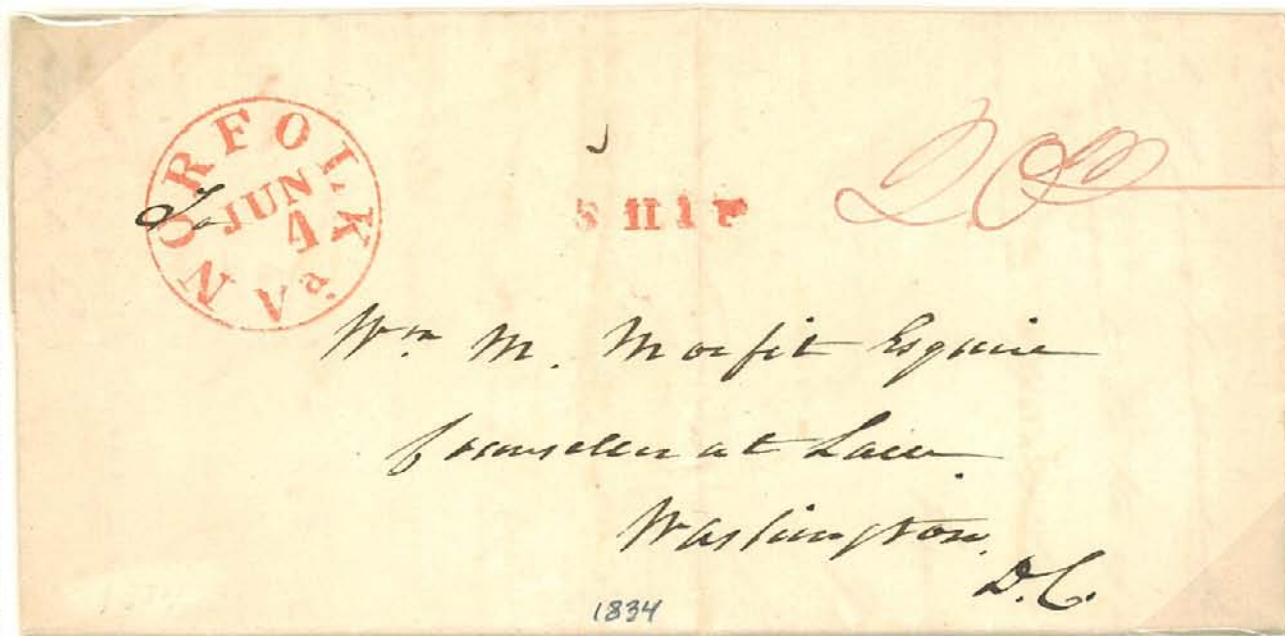 NORFOLK Va
JUN
4
To
SHIP
20
Wm M. Morfit Esquire
Counseller at Law.
Washington.
D.C.
1834